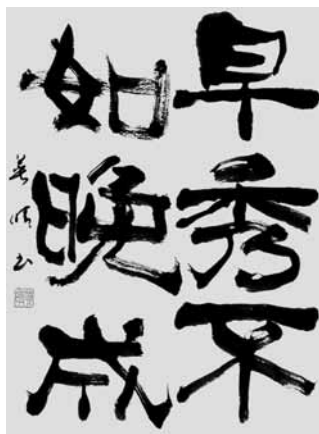 早秀不
如晚成